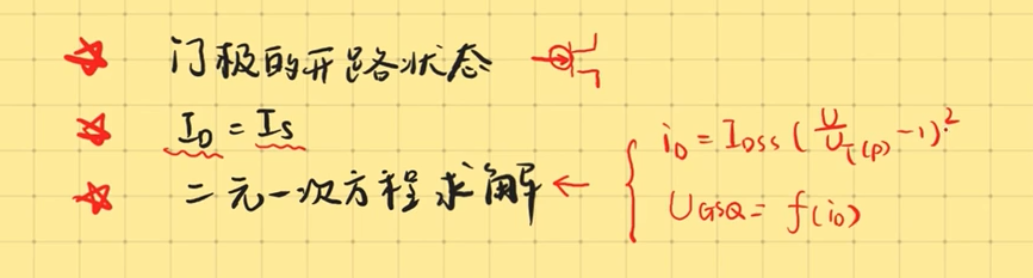 门极的开路状态
I_D = I_S
二元一次方程求解 ←
i_D = I_DSS (U/U_T(P) - 1)²
U_GSQ = f(i_D)